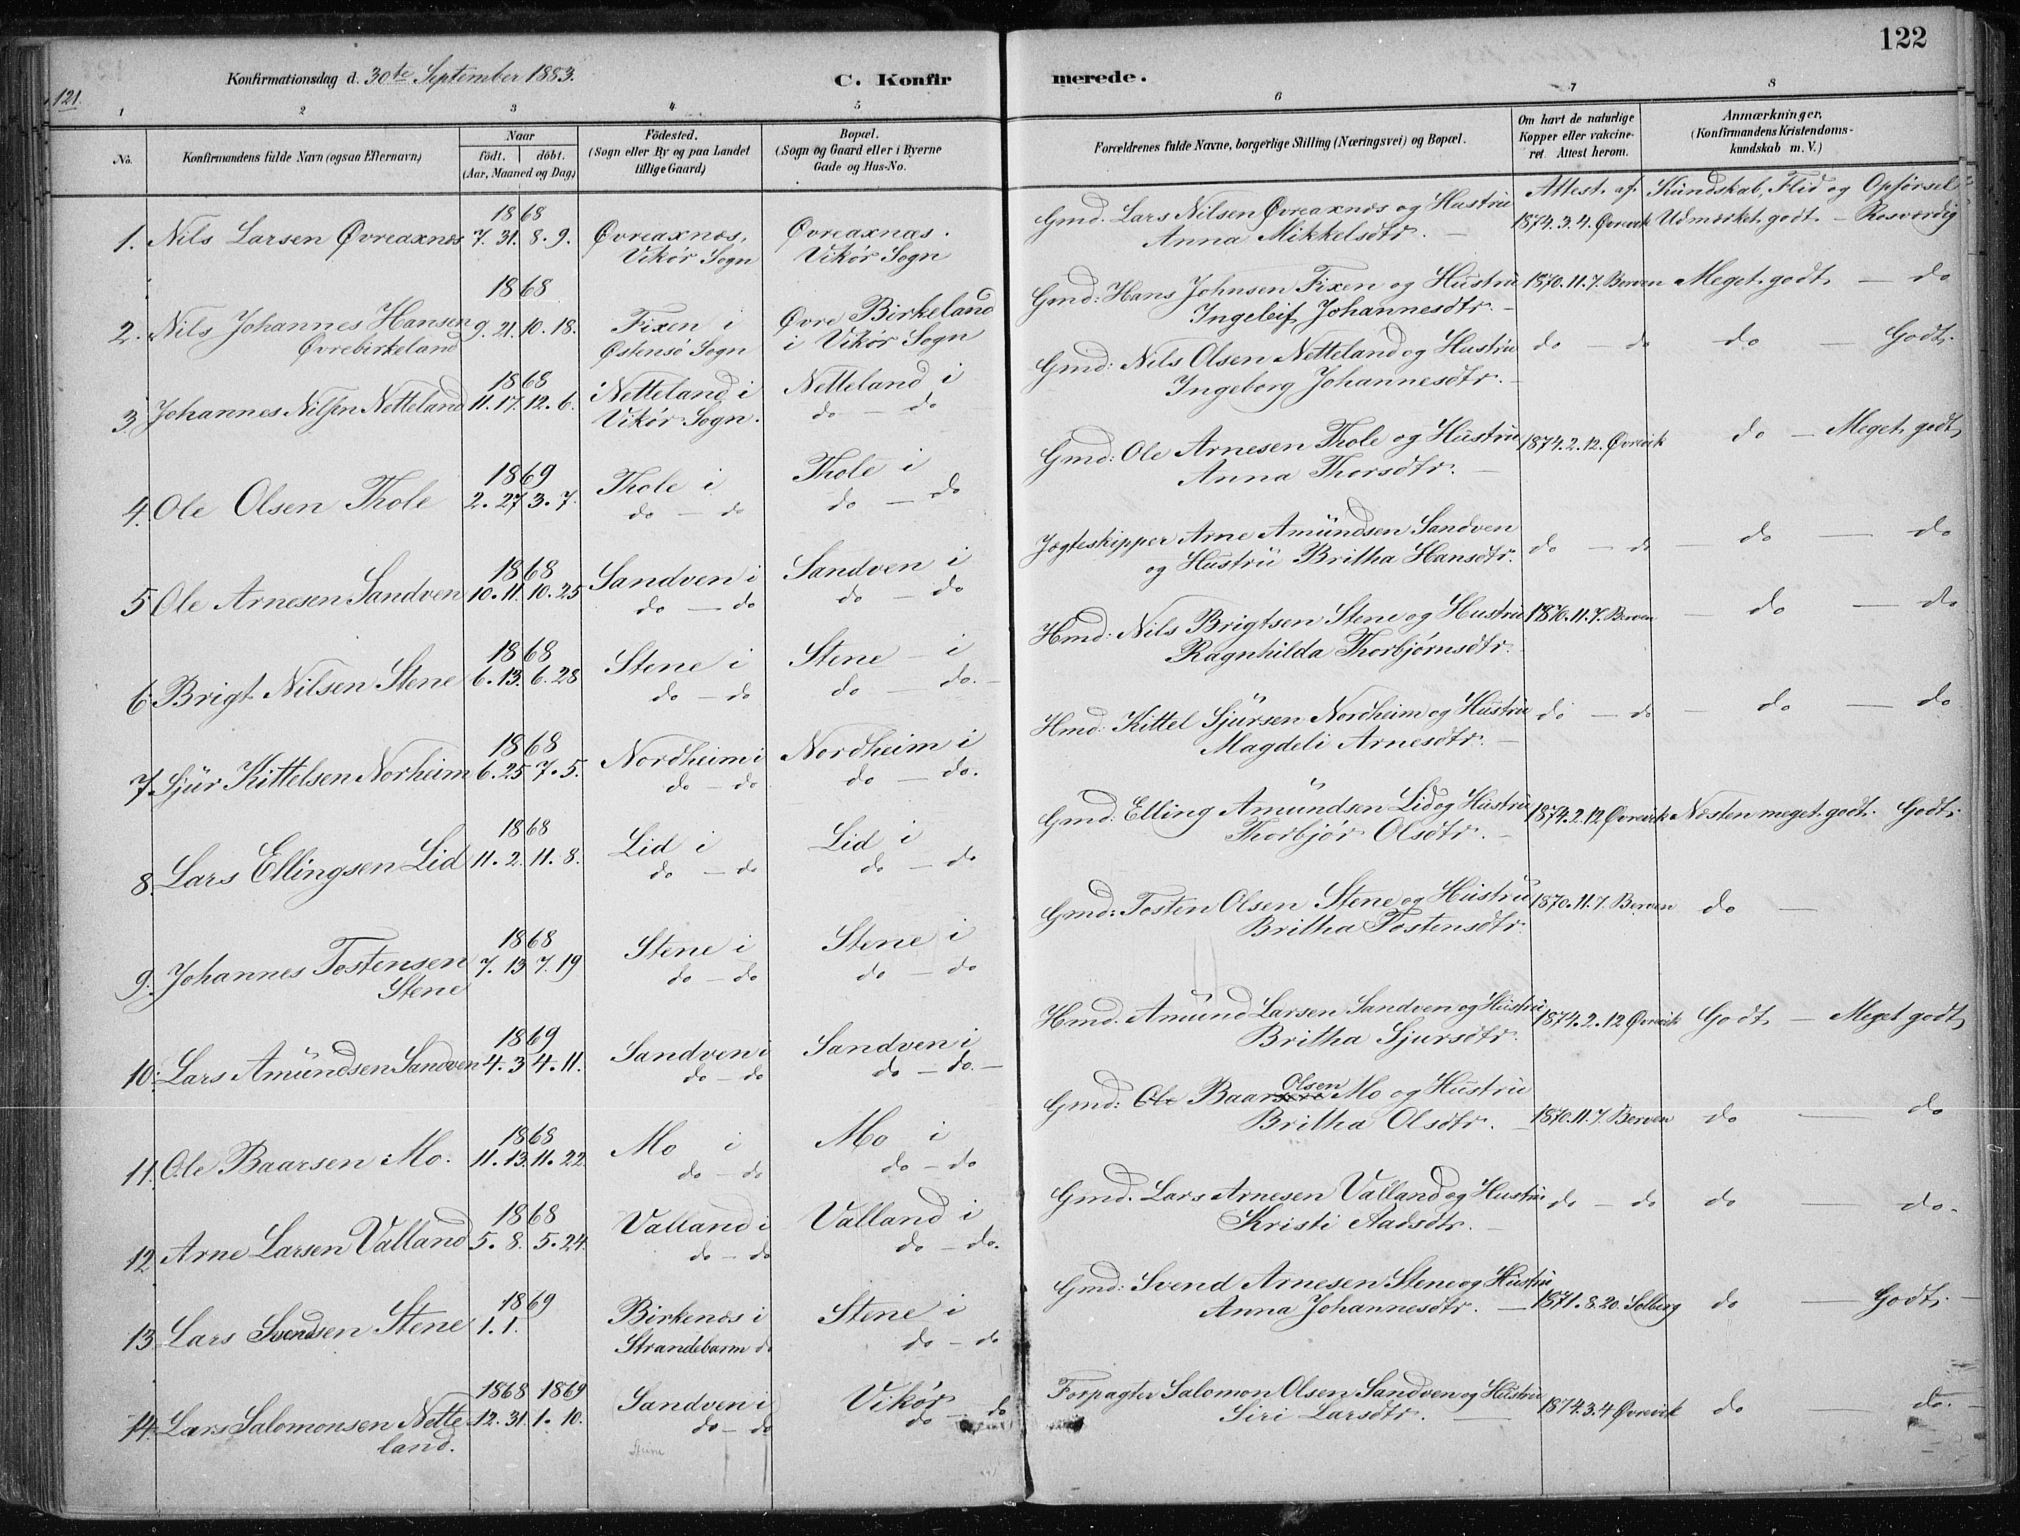 122
121.
Konfirmationsdag d. 30te September 1883.
C. Konfirmerede.
1 2 3 4 5 6 7 8
No.
Konfirmandens fulde Navn (ogsaa Efternavn)
Naar
födt. döbt.
(Aar, Maaned og Dag)
Födested.
(Sogn eller By og paa Landet
tillige Gaard)
Bopæl.
(Sogn og Gaard eller i Byerne
Gade og Hus-No.
Forældrenes fulde Navne, borgerlige Stilling (Næringsvei) og Bopæl.
Om havt de naturlige
Kopper eller vakcine-
ret. Attest herom.
Anmærkninger,
(Konfirmandens Kristendoms-
kundskab m. V.)
Attest af. Kundskab, Flid og Opførsel
1868
1. Nils Larsen Øvreaxnæs 7. 31. 8. 9. Øvreaxnæs, Øvreaxnæs.
Vikør Sogn Vikør Sogn
Gmd. Lars Nilsen Øvreaxnæs og Hustru 1874.3.4. Øvrevik Udmærket godt. – Rosværdig
Anna Mikkelsdtr. –
1868
2. Nils Johannes Hansen 9. 21. 10. 18. Fixen i Øvre Birkeland
Øvrebirkeland Østensø Sogn i Vikør Sogn
Gmd: Hans Johnsen Fixen og Hustru 1870.11.7. Berven Meget godt. – do
Ingeleif Johannesdtr. –
1868
3. Johannes Nilsen Netteland 11. 17. 12. 6. Netteland i Netteland i
Vikør Sogn. do – do
Gmd: Nils Olsen Netteland og Hustru do – do do – Godt.
Ingeborg Johannesdtr. –
1869
4. Ole Olsen Thole 2. 27 3. 7. Thole i Thole i
do – do do – do
Gmd: Ole Arnesen Thole og Hustru 1874.2.12. Øvrevik do – Meget godt.
Anna Thorsdtr. –
1868
5 Ole Arnesen Sandven 10. 11. 10. 25 Sandven i Sandven i
do – do do – do
Jægteskipper Arne Amundsen Sandven do – do – do – do
og Hustru Britha Hansdtr.
1868
6. Brigt Nilsen Stene 6. 13. 6. 28 Stene i Stene – i
do – do do – do. –
Hmd: Nils Brigtsen Stene og Hustru 1870.11.7. Berven – do – do
Ragnhilda Thorbjørnsdtr.
1868
7. Sjur Kittelsen Norheim 6. 25 7. 5. Nordheim i Nordheim i
do – do do – do.
Hmd: Kittel Sjursen Nordheim og Hustru do – do – do – do
Magdeli Arnesdtr. –
1868
8. Lars Ellingsen Lid 11. 2. 11. 8. Lid i Lid i
do – do do – do
Gmd: Elling Amundsen Lid og Hustru 1874.2.12 Øvrevik Næsten meget godt. Godt.
Thorbjør Olsdtr. –
1868
9. Johannes Tostensen 7. 13 7. 19 Stene i Stene i
Stene do – do do – do
Gmd: Tosten Olsen Stene og Hustru 1870.11.7. Berven do –
Britha Tostensdtr.
1869
10. Lars Amundsen Sandven 4. 3 4. 11. Sandven i Sandven i
do – do do – do. –
Hmd. Amund Larsen Sandven og Hustru 1874.2.12 Øvrevik Godt – Meget godt
Britha Sjursdtr.
1868
11. Ole Baarsen Mo. 11. 13. 11. 22 Mo i Mo i
do – do do – do
Gmd: Ole Baar Olsen Mo og Hustru
Britha Olsdtr. – 1870.11.7. Berven do – do
1868
12. Arne Larsen Valland 5. 8. 5. 24. Valland i Valland i
do – do do – do.
Gmd. Lars Arnesen Valland og Hustru do – do do – do.
Kristi Aadsdtr. –
1869
13. Lars Svendsen Stene 1. 1. Birkenæs i Stene i
Strandebarm do do – do
Gmd: Svend Arnesen Stene og Hustru
Anna Johannesdtr. – 1871.8.20. Solberg do – Godt. –
1868 1869
14. Lars Salomonsen Nette 12. 31. 1. 10. Sandven i Vikør
land. do – do do – do
Forpagter Salomon Olsen Sandven og Hustru
Siri Larsdtr. – 1874.3.4 Øvrevik do – do. –